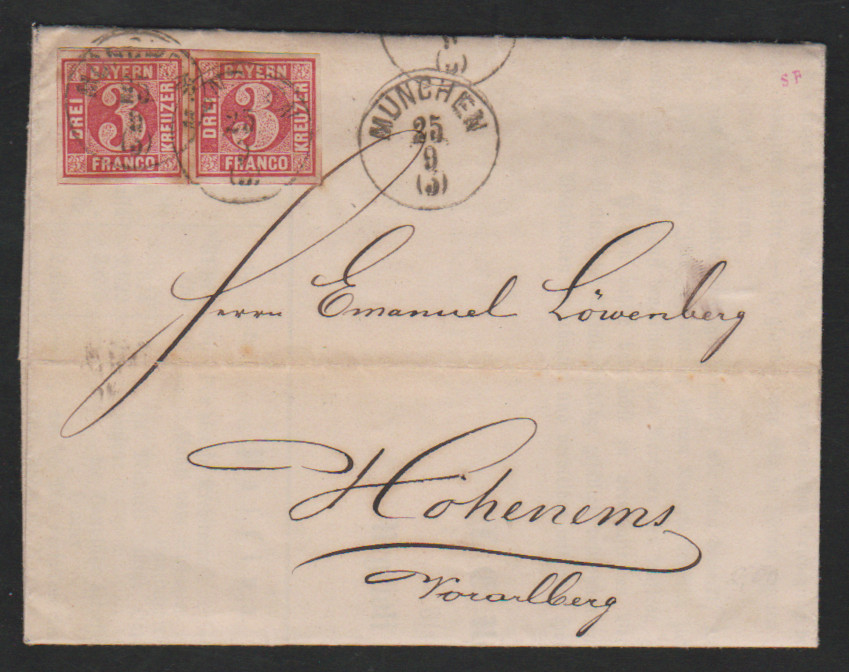 BAYERN
DREI
3
KREUZER
FRANCO
BAYERN
DREI
3
KREUZER
FRANCO
25
MÜNCHEN
25
9
(3)
S F
Herrn Emanuel Löwenberg
Hohenems
Vorarlberg